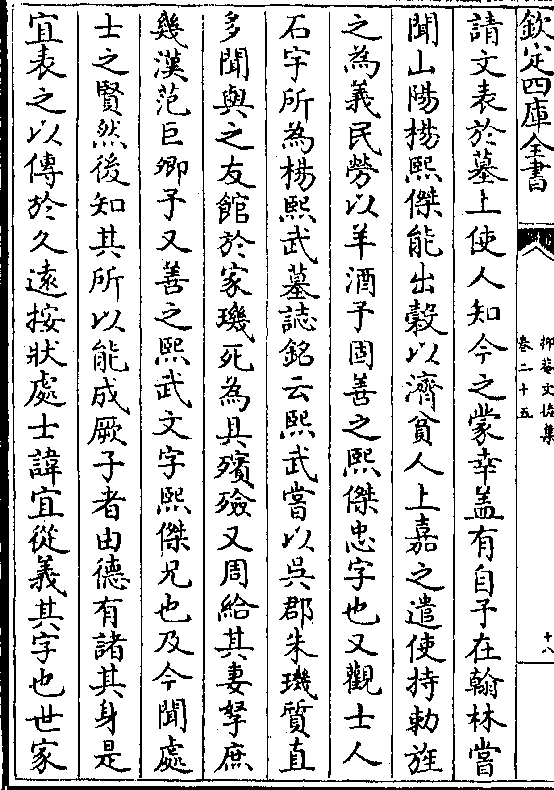 欽定四庫全書
抑菴文後集
卷二十五
十八
請文表於墓上使人知今之蒙幸盖有自予在翰林嘗
聞山陽楊熙傑能出糓以濟貧人上嘉之遣使持勅旌
之為義民勞以羊酒予固善之熙傑忠字也又觀士人
石宇所為楊熙武墓誌銘云熙武嘗以吳郡朱璣質直
多聞與之友館於家璣死為具殯殮又周給其妻孥庶
幾漢范巨卿予又善之熙武文字熙傑兄也及今聞處
士之賢然後知其所以能成厥子者由德有諸其身是
宜表之以傳於久遠按狀處士諱宜從義其字也世家